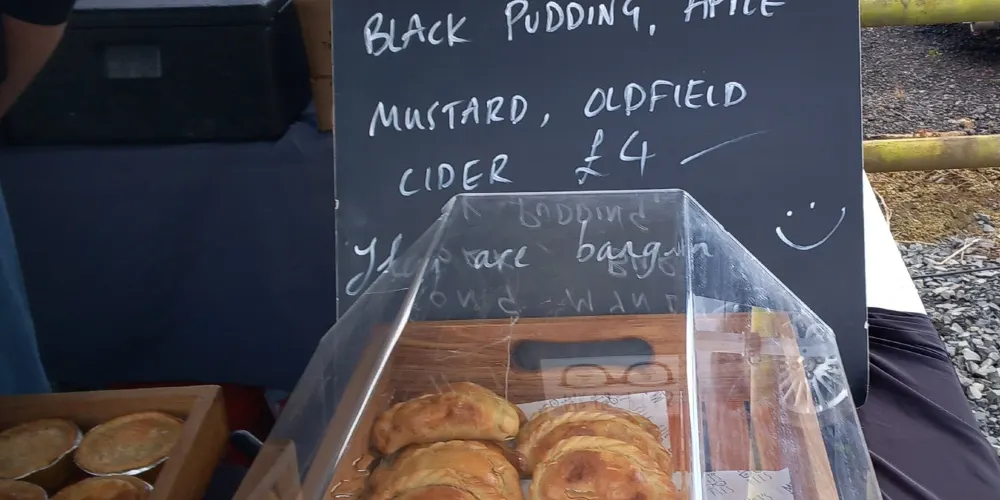 BLACK PUDDING, APPLE
MUSTARD, OLDFIELD
CIDER £4
They are bangin